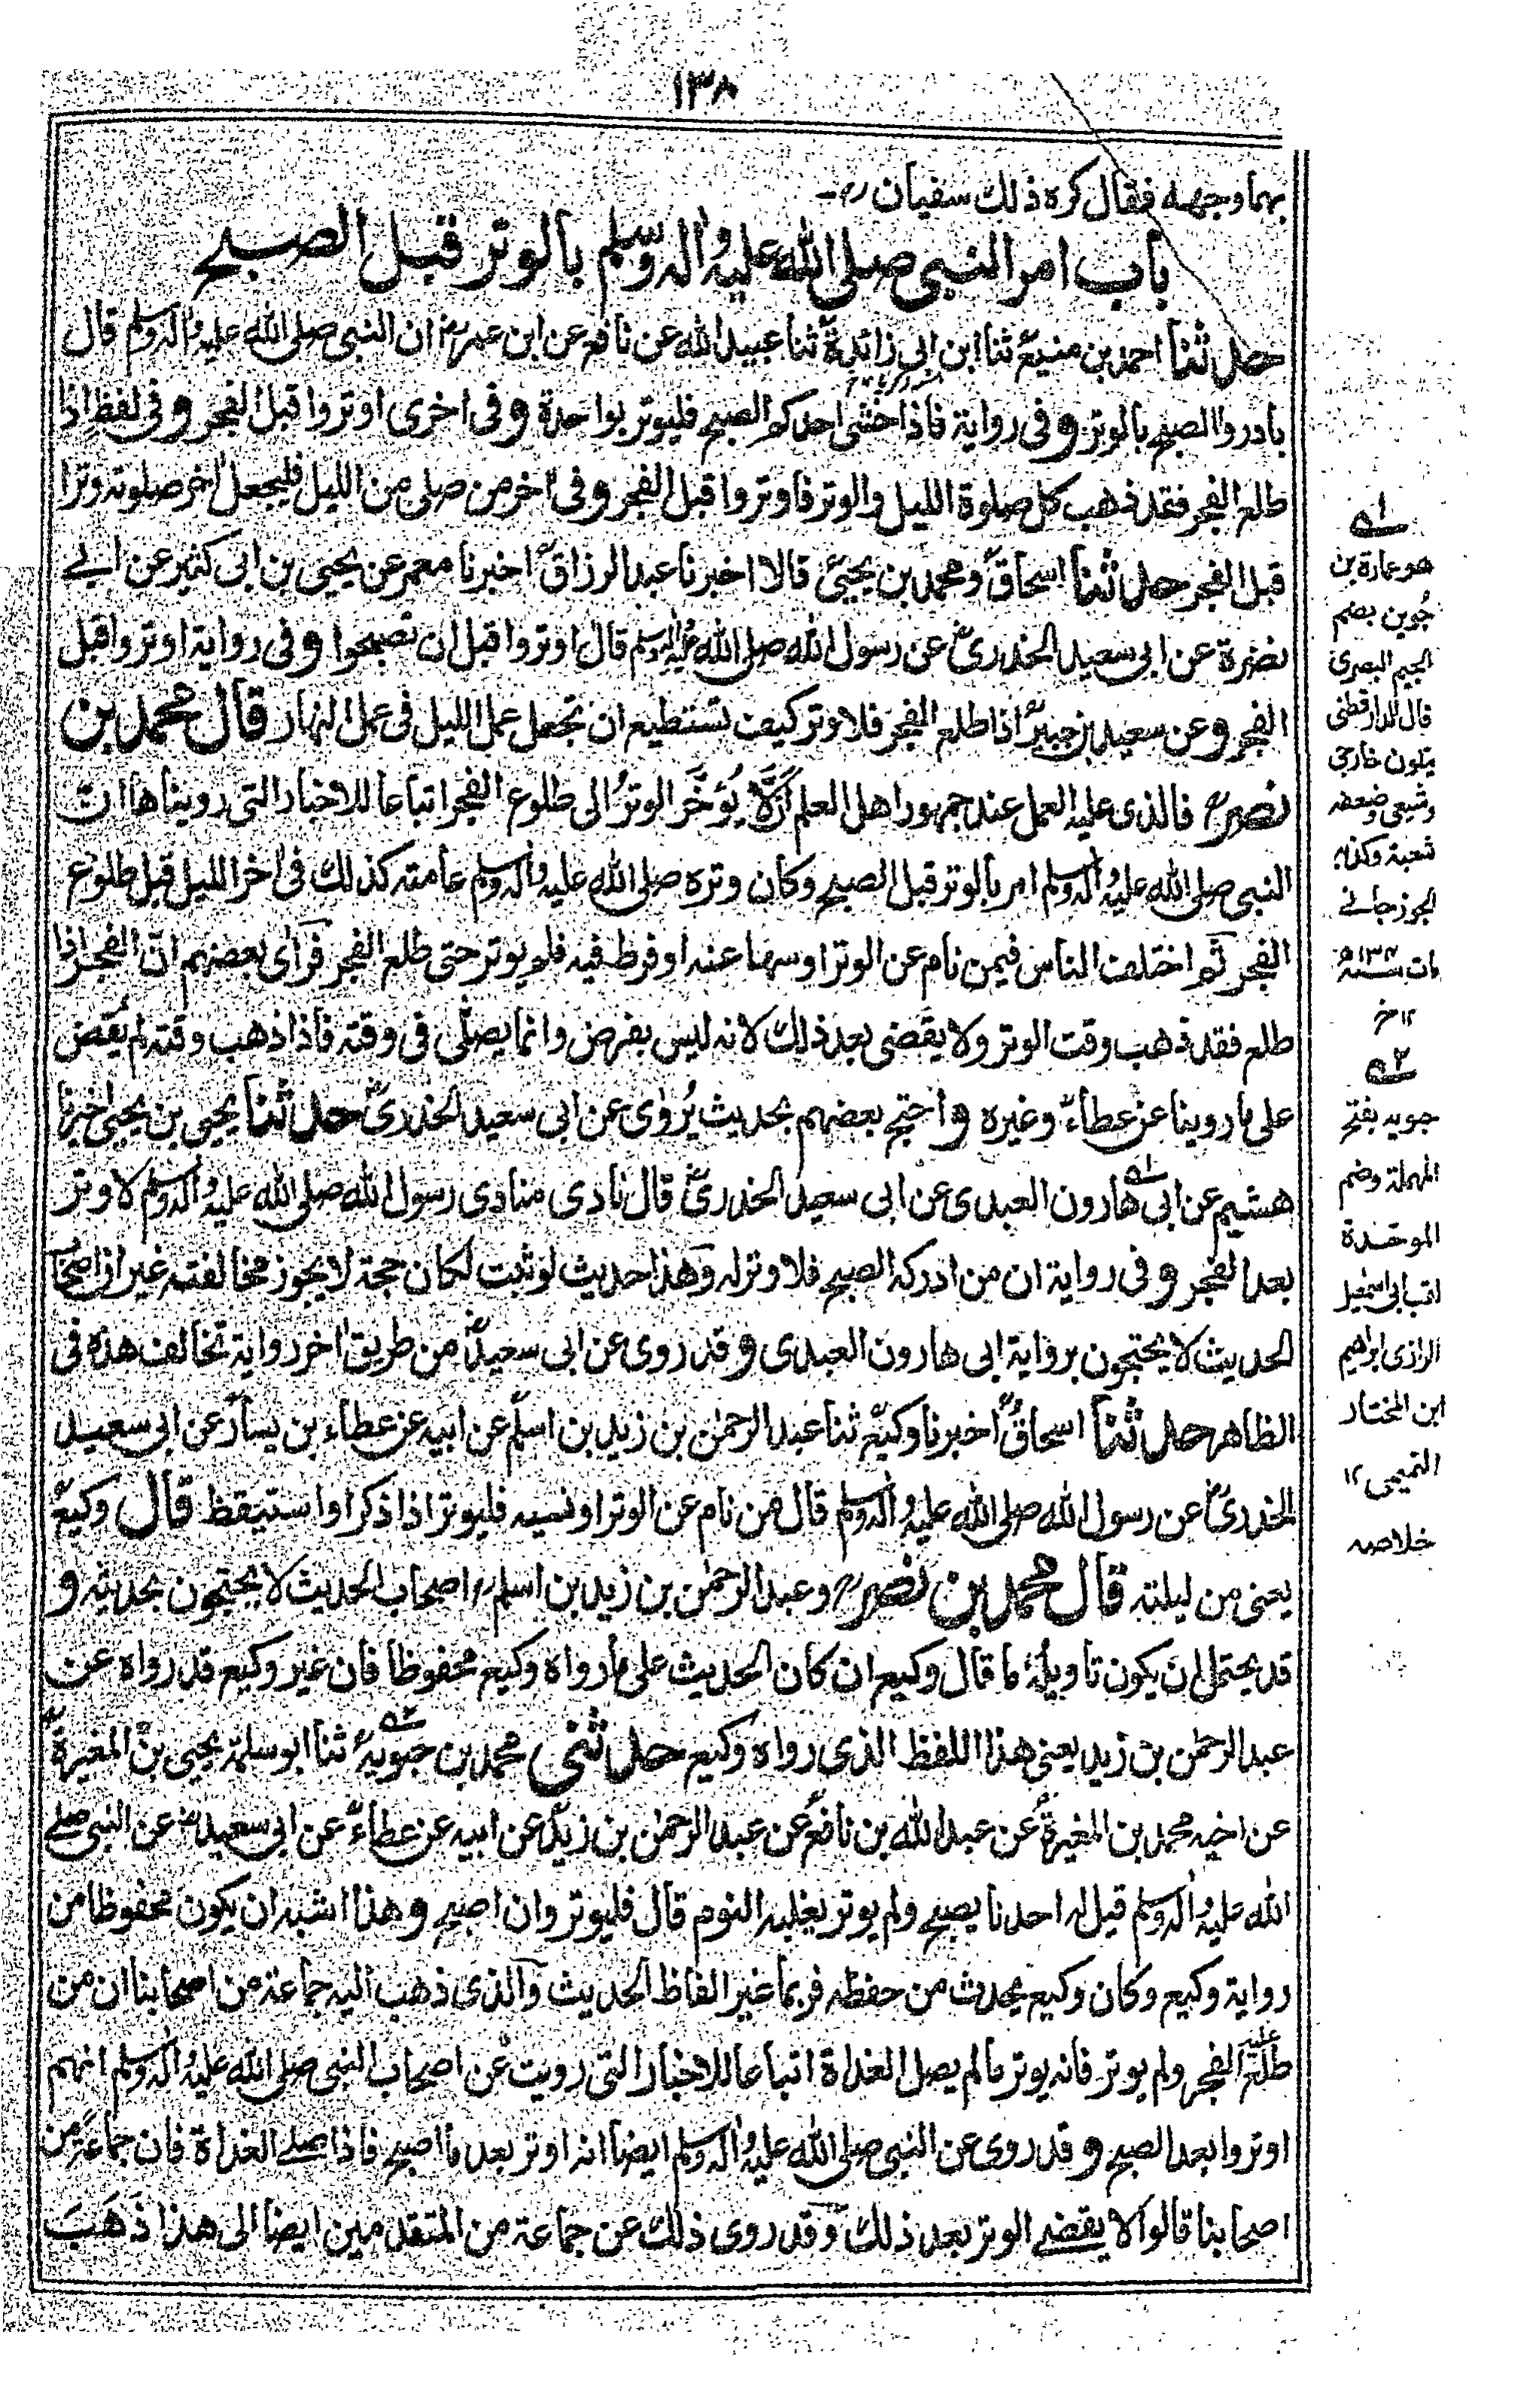 ١٣٨
بهما وجهه فقال كره ذلك سفيان رح -
باب امر النبي صلى الله عليه واٰله وسلم بالوتر قبل الصبح
حدثنا احمد بن منيع ثنا ابن ابي زائدة ثنا عبيد الله عن نافع عن ابن عمر ان النبي صلى الله عليه واٰله وسلم قال
بادروا الصبح بالوتر وفي رواية فاذا خشي احدكم الصبح فليوتر بواحدة وفي اخرى اوتروا قبل الفجر وفي لفظ اذا
طلع الفجر فقد ذهب كل صلوة الليل والوتر فاوتروا قبل الفجر وفي اٰخر من صلى من الليل فليجعل اٰخر صلوته وترا
قبل الفجر حدثنا اسحاق ومحمد بن يحيى قالا اخبرنا عبد الرزاق اخبرنا معمر عن يحيى بن ابي كثير عن ابي
نضرة عن ابي سعيد الخدري عن رسول الله صلى الله عليه واٰله وسلم قال اوتروا قبل ان تصبحوا وفي رواية اوتروا قبل
الفجر وعن سعيد بن جبير اذا طلع الفجر فلا وتر كيف تستطيع ان تجعل عمل الليل في عمل النهار قال محمد بن
نصر رح فالذي عليه العمل عند جمهور اهل العلم ان لا يُؤخَّر الوترُ الى طلوع الفجر اتباعا للاخبار التي رويناها ان
النبي صلى الله عليه واٰله وسلم امر بالوتر قبل الصبح وكان وتره صلى الله عليه واٰله وسلم عامته كذلك في اٰخر الليل قبل طلوع
الفجر ثم اختلف الناس فيمن نام عن الوتر او سها عنه او فرط فيه فلم يوتر حتى طلع الفجر فرأى بعضهم ان الفجر اذا
طلع فقد ذهب وقت الوتر ولا يقضى بعد ذلك لانه ليس بفرض وانما يصلّى في وقته فاذا ذهب وقته لم يُقض
على ما روينا عن عطاء وغيره واحتج بعضهم بحديث يُروٰى عن ابي سعيد الخدري حدثنا يحيى بن يحيى اخبرنا
هشيم عن ابي هارون العبدي عن ابي سعيد الخدري قال نادى منادي رسول الله صلى الله عليه واٰله وسلم لا وتر
بعد الفجر وفي رواية ان من ادركه الصبح فلا وتر له وهذا حديث لو ثبت لكان حجة لا يجوز مخالفته غير ان اصحاب
الحديث لا يحتجون برواية ابي هارون العبدي وقد روى عن ابي سعيد من طريق اٰخر رواية تخالف هذه في
الظاهر حدثنا اسحاق اخبرنا وكيع ثنا عبد الرحمٰن بن زيد بن اسلم عن ابيه عن عطاء بن يسار عن ابي سعيد
الخدري عن رسول الله صلى الله عليه واٰله وسلم قال من نام عن الوتر او نسيه فليوتر اذا ذكر او استيقظ قال وكيع
يعني من ليلته قال محمد بن نصر رح وعبد الرحمٰن بن زيد بن اسلم اصحاب الحديث لا يحتجون بحديثه و
قد يحتمل ان يكون تاويله ما قال وكيع ان كان الحديث على ما رواه وكيع محفوظا فان غير وكيع قد رواه عن
عبد الرحمٰن بن زيد يعني هذا اللفظ الذي رواه وكيع حدثنى محمد بن حبويه ثنا ابو سلمة يحيى بن المغيرة
عن اخيه محمد بن المغيرة عن عبد الله بن نافع عن عبد الرحمٰن بن زيد عن ابيه عن عطاء عن ابي سعيد عن النبي صلى
الله عليه واٰله وسلم قيل له احدنا يصبح ولم يوتر يغلبه النوم قال فليوتر وان اصبح وهذا اشبه ان يكون محفوظا من
رواية وكيع وكان وكيع يحدث من حفظه فربما غير الفاظ الحديث والذي ذهب اليه جماعة من اصحابنا ان من
طلع عليه الفجر ولم يوتر فانه يوتر ما لم يصل الغداة اتباعا للاخبار التي رويت عن اصحاب النبي صلى الله عليه واٰله وسلم انهم
اوتروا بعد الصبح وقد روى عن النبي صلى الله عليه واٰله وسلم ايضا انه اوتر بعد ما اصبح فاذا صلى الغداة فان جماعة من
اصحابنا قالوا لا يقضى الوتر بعد ذلك وقد روى ذلك عن جماعة من المتقدمين ايضا الى هذا ذَهَبَ
١ه
هو عمارة بن
جُوين بضم
الجيم البصري
قال الدارقطني
يتلون خارجي
وشيعي وضعفه
شعبة وكذبه
الجوزجاني
مات سنة ١٣٤ه
١٢ خ
٢ه
حبويه بفتح
المهملة وضم
الموحّدة
لقب ابي اسمٰعيل
الرازي ابراهيم
ابن المختار
التميمي ١٢
خلاصه